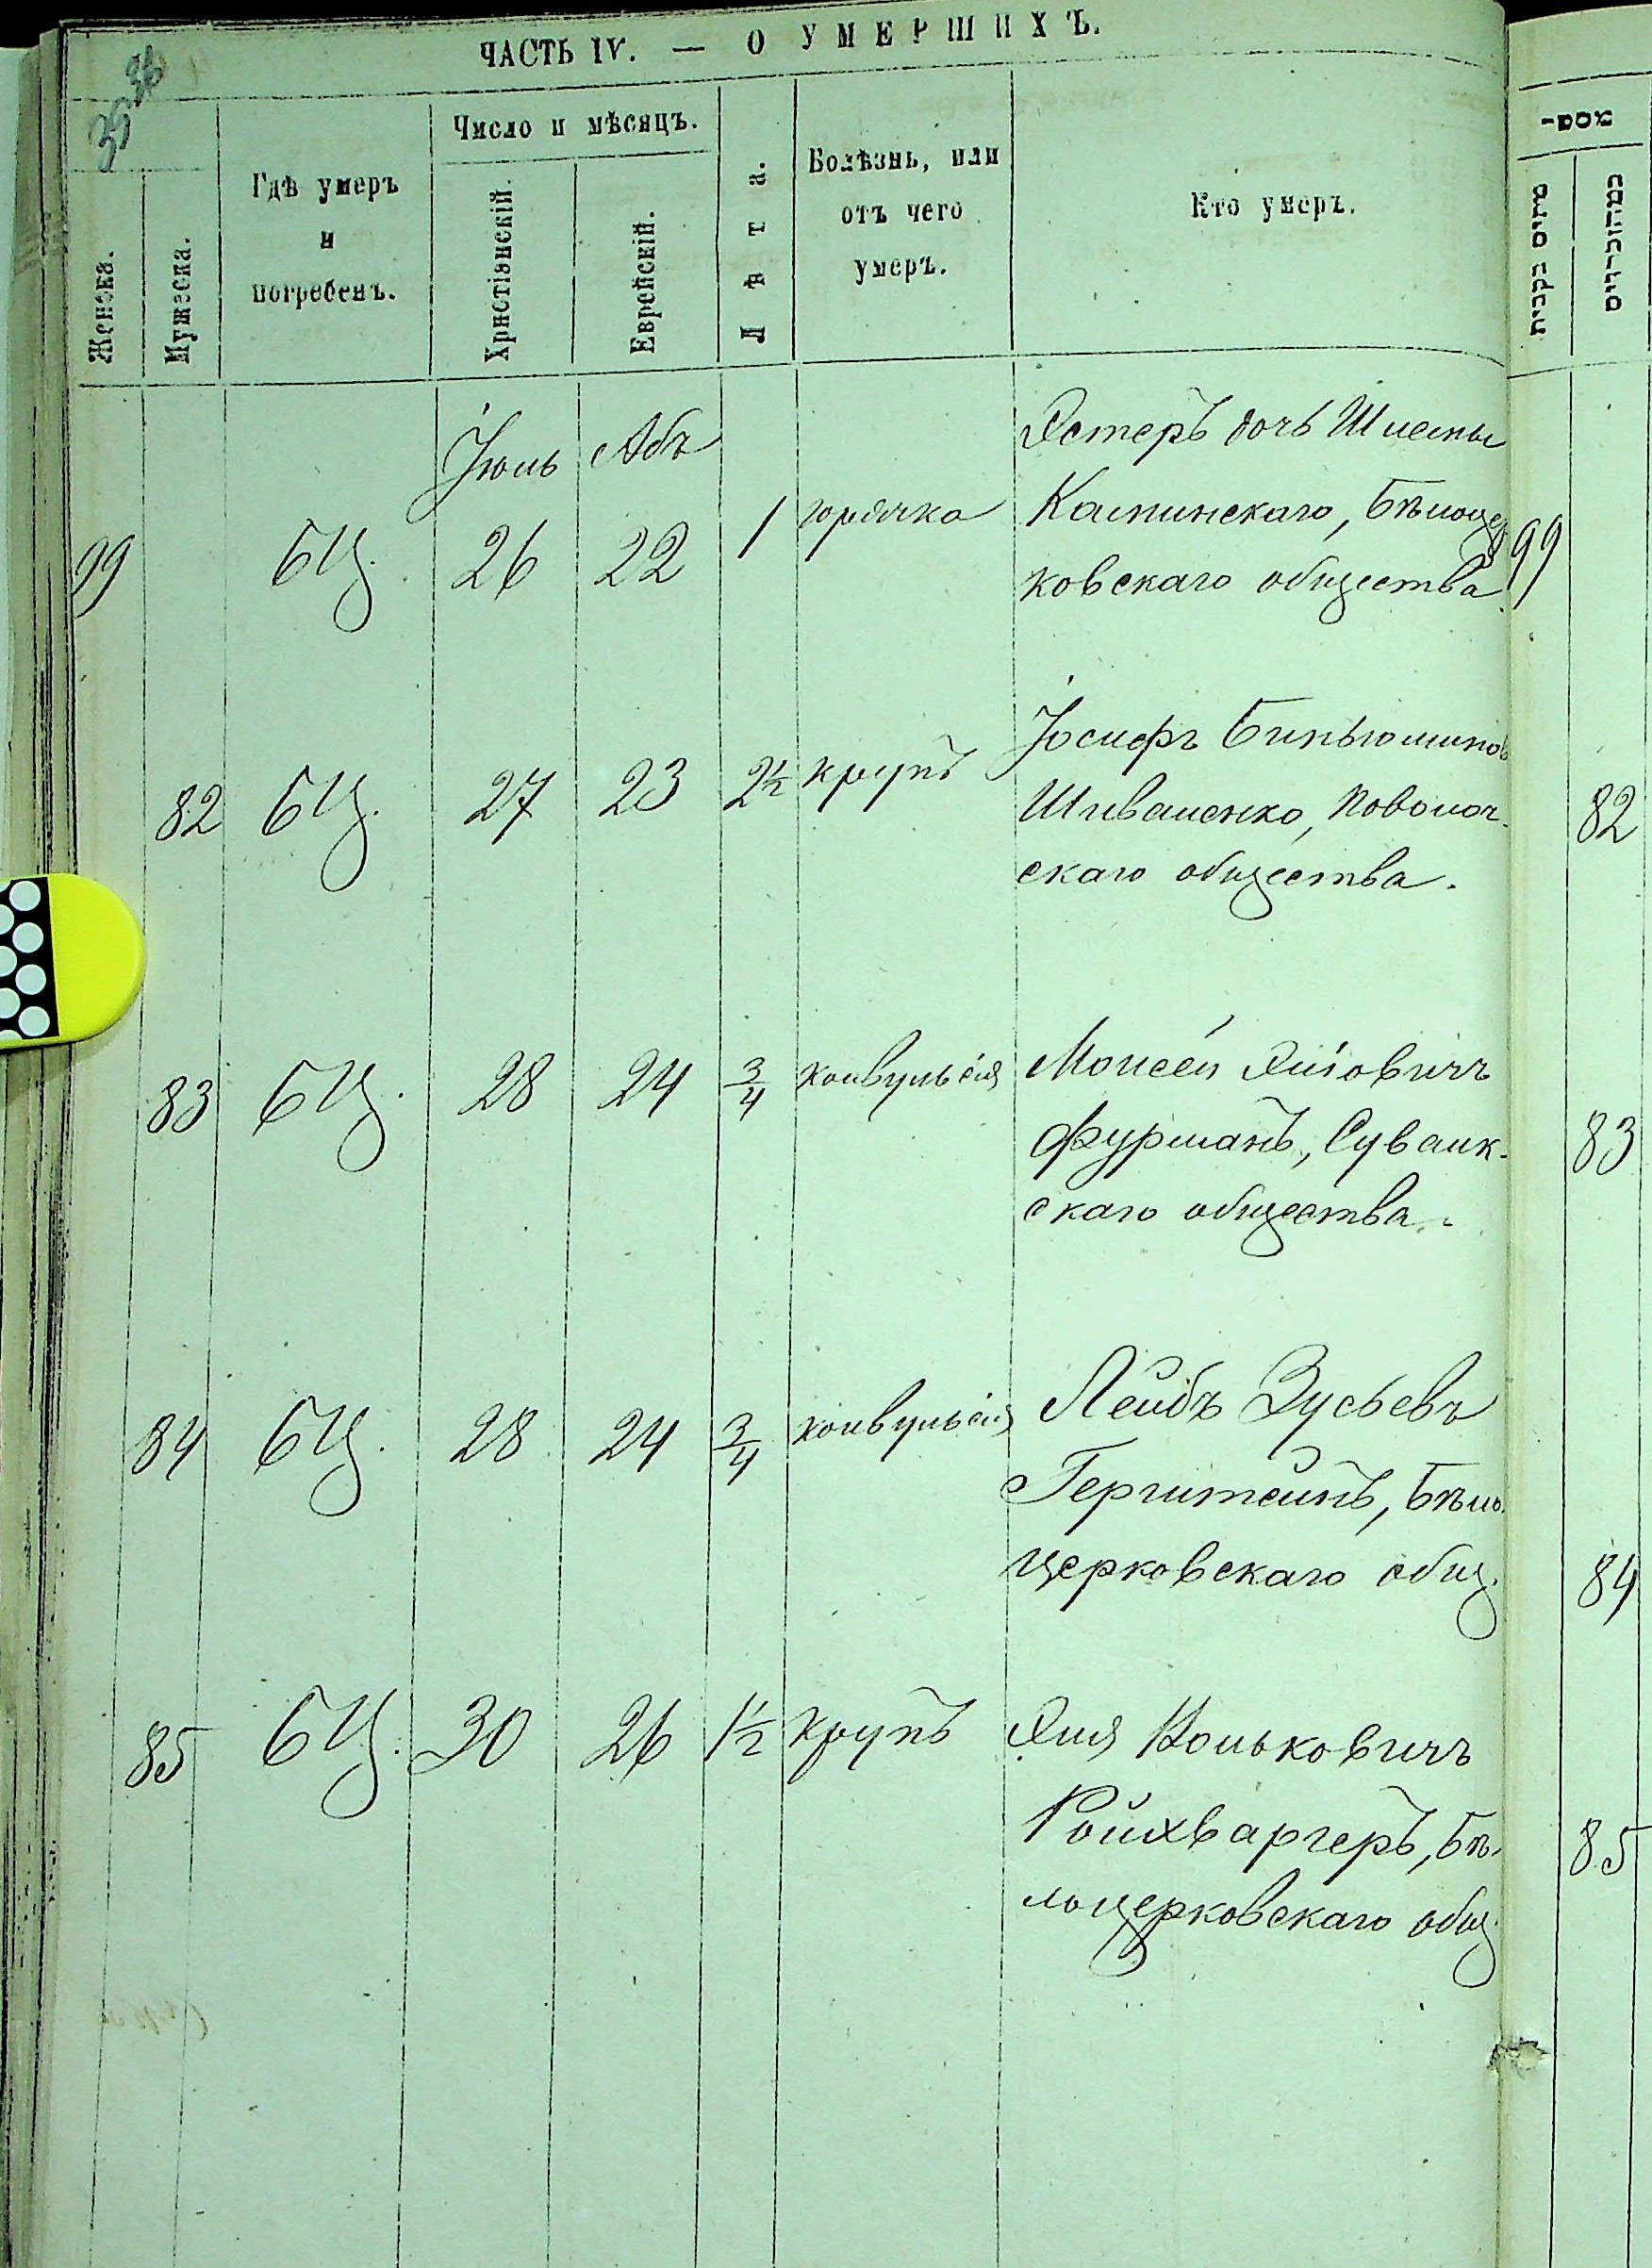 ЧАСТЬ IV. — О УМЕРШИХЪ.
35 36
Женска.
Мужеска.
Гдѣ умеръ
и
погребенъ.
Число и мѣсяцъ.
Христіанскій.
Еврейскій.
Лѣта.
Болѣзнь, или
отъ чего
умеръ.
Кто умеръ.
Іюль Абъ
99 БЦ. 26 22 1 горячка
Эстеръ дочь Шлемы
Калинскаго, Бѣлоцер
ковскаго общества.
82 БЦ. 27 23 2½ крупъ
Іосифъ Биньюминов
Шиваленко, Поволоч-
скаго общества.
83 БЦ. 28 24 3/4 конвульсія
Моисей Эліовичъ
Фурманъ, Сувалк-
скаго общества.
84 БЦ. 28 24 3/4 конвульсія
Лейбъ Зусьевъ
Герштейнъ, Бѣло-
церковскаго общ.
85 БЦ. 30 26 1½ крупъ
Эля Йольковичъ
Ройхваргеръ, Бѣ-
лоцерковскаго общ.
99
82
83
84
85